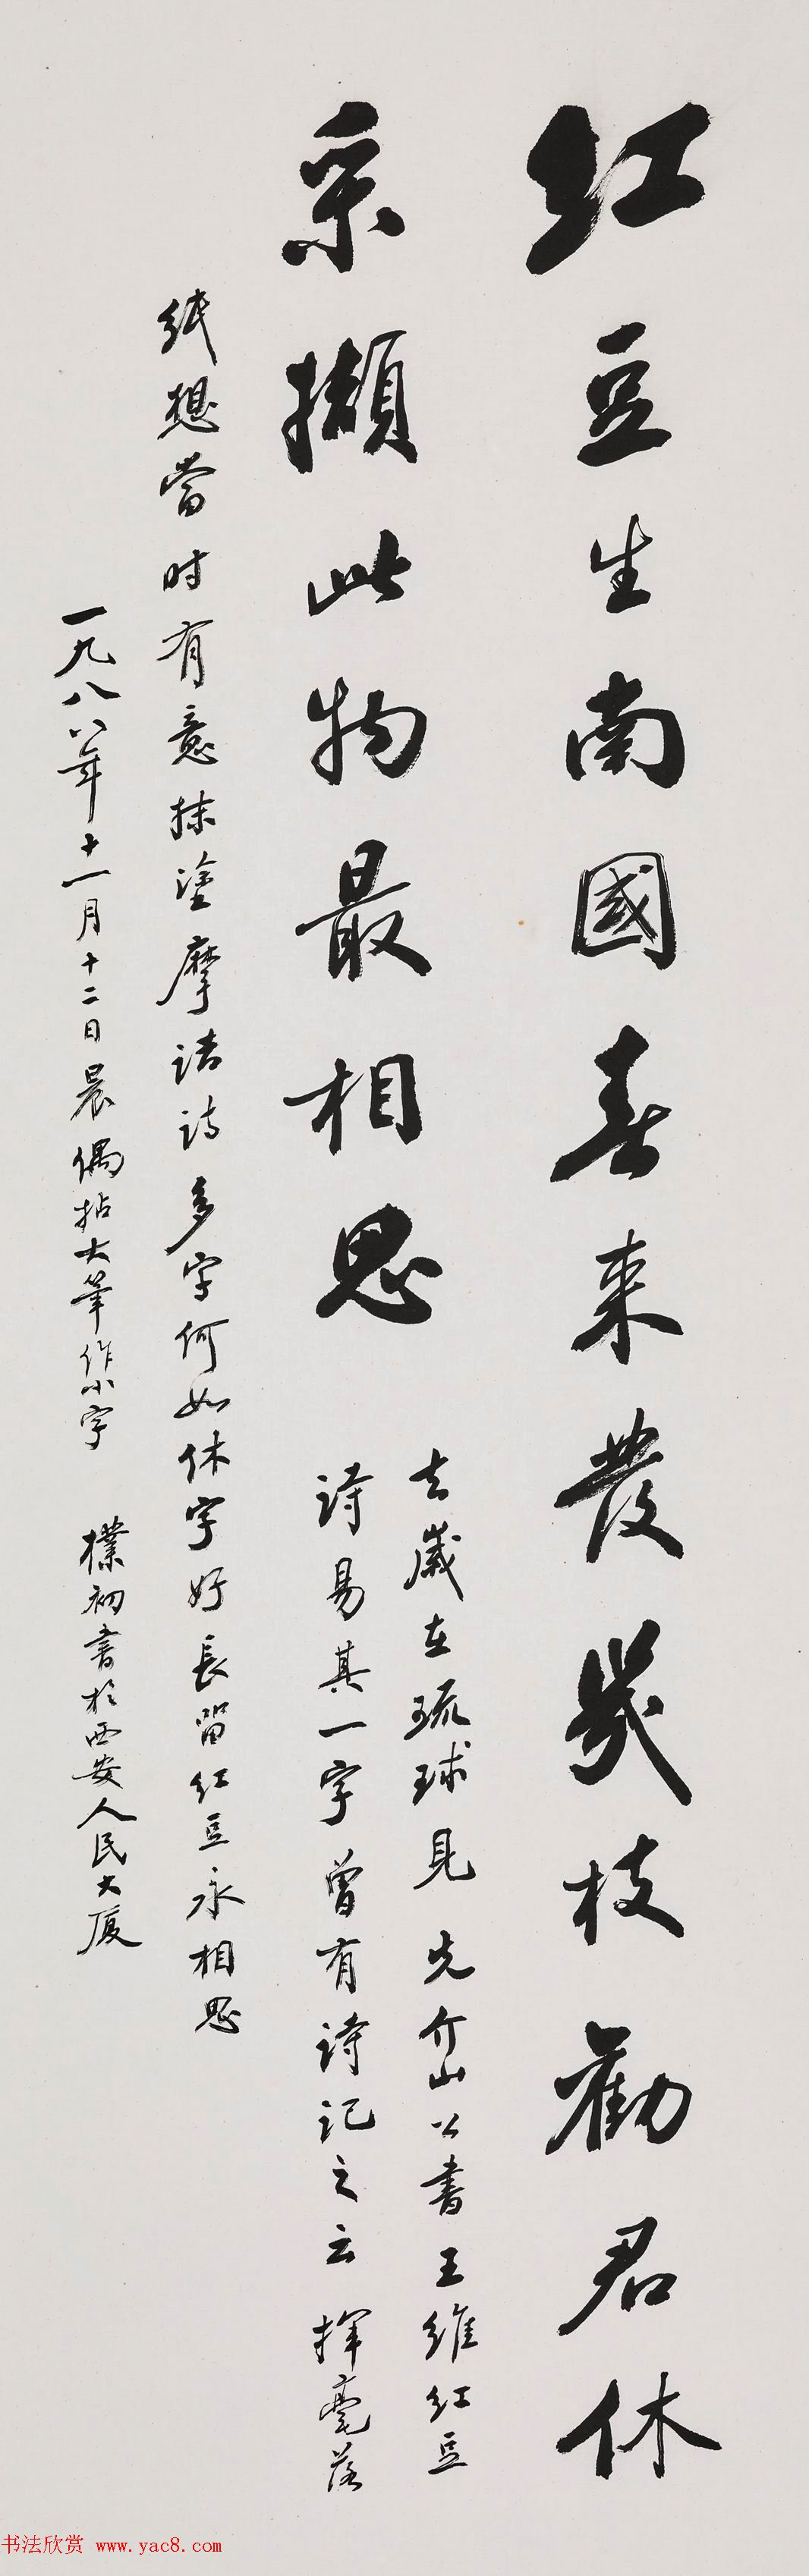 红豆生南國春来發幾枝勸君休
采擷此物最相思
去歲在琉球見 先介山公書王維红豆
詩易其一字曾有詩記之云揮毫落
纸想當时有意抹塗摩诘詩多字何如休字好長留红豆永相思
一九八八年十一月十二日晨偶拈大筆作小字 樸初書於西安人民大厦
书法欣赏 www.yac8.com